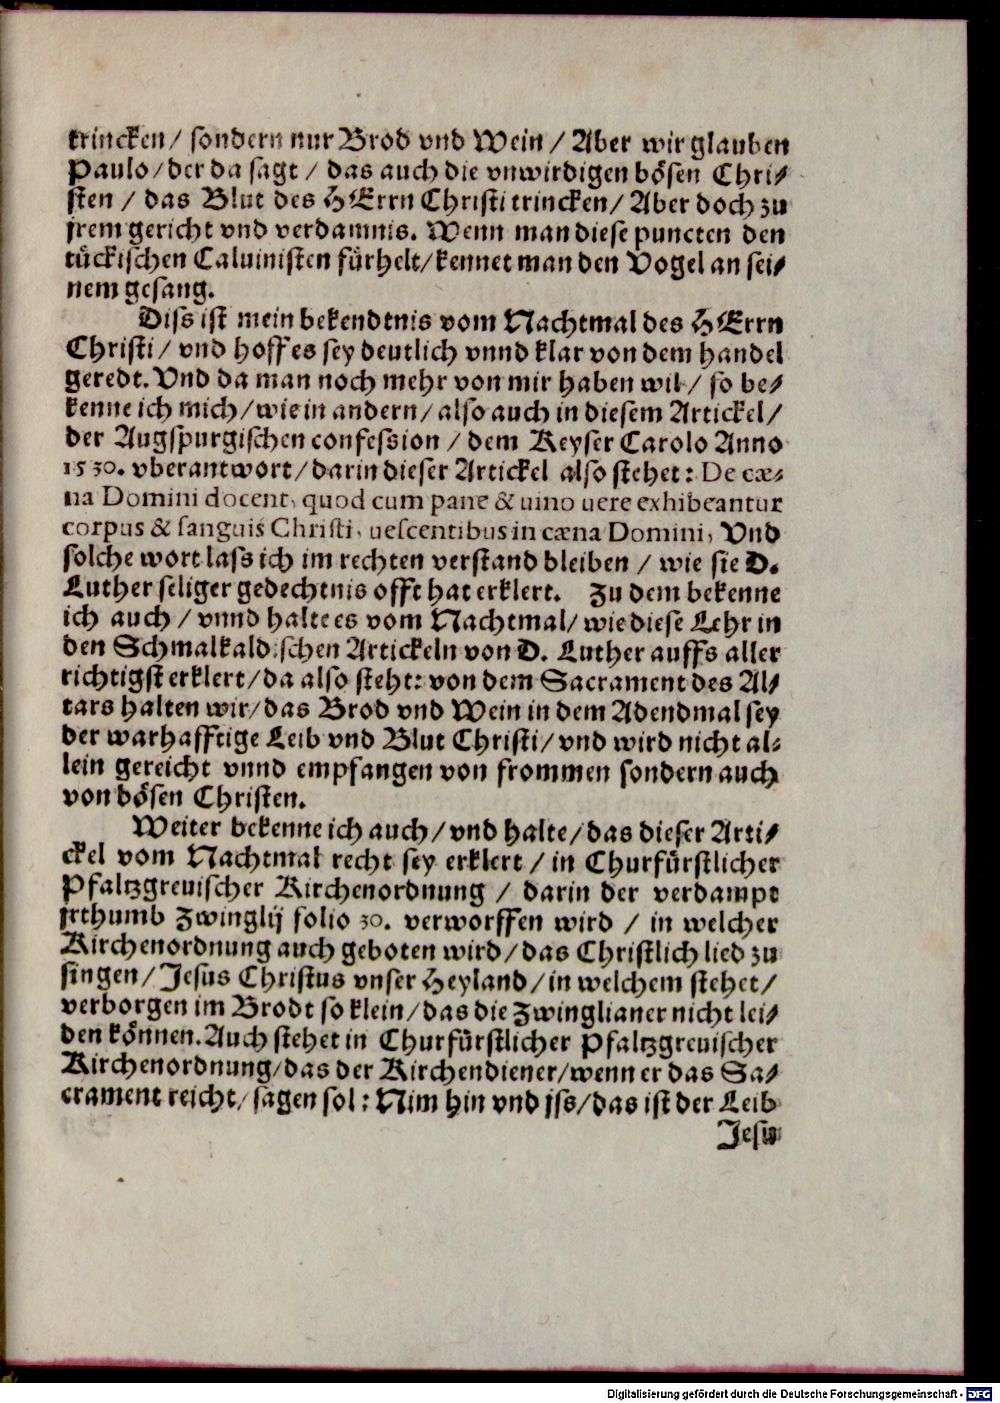 trincken / sondern nur Brod vnd Wein / Aber wir glauben
Paulo / der da sagt / das auch die vnwirdigen bösen Chri⸗
sten / das Blut des HErrn Christi trincken / Aber doch zu
jrem gericht vnd verdamnis. Wenn man diese puncten den
tückischen Caluinisten fürhelt / kennet man den Vogel an sei⸗
nem gesang.
Diss ist mein bekendtnis vom Nachtmal des HErrn
Christi / vnd hoff es sey deutlich vnnd klar von dem handel
geredt. Vnd da man noch mehr von mir haben wil / so be⸗
kenne ich mich / wie in andern / also auch in diesem Artickel /
der Augspurgischen confession / dem Keyser Carolo Anno
1530. vberantwort / darin dieser Artickel also stehet: De cœ⸗
na Domini docent, quod cum pane & uino uere exhibeantur
corpus & sanguis Christi, uescentibus in cœna Domini, Vnd
solche wort lass ich im rechten verstand bleiben / wie sie D.
Luther seliger gedechtnis offt hat erklert. Zu dem bekenne
ich auch / vnnd halte es vom Nachtmal / wie diese Lehr in
den Schmalkaldischen Artickeln von D. Luther auffs aller
richtigst erklert / da also steht: von dem Sacrament des Al⸗
tars halten wir / das Brod vnd Wein in dem Adendmal sey
der warhafftige Leib vnd Blut Christi / vnd wird nicht al⸗
lein gereicht vnnd empfangen von frommen sondern auch
von bösen Christen.
Weiter bekenne ich auch / vnd halte / das dieser Arti⸗
ckel vom Nachtmal recht sey erklert / in Churfürstlicher
Pfaltzgreuischer Kirchenordnung / darin der verdampt
jrthumb Zwinglij folio 30. verworffen wird / in welcher
Kirchenordnung auch geboten wird / das Christlich lied zu
singen / Jesus Christus vnser Heyland / in welchem stehet /
verborgen im Brodt so klein / das die Zwinglianer nicht lei⸗
den können. Auch stehet in Churfürstlicher Pfaltzgreuischer
Kirchenordnung / das der Kirchendiener / wenn er das Sa⸗
crament reicht / sagen sol: Nim hin vnd jss / das ist der Leib
Jesu
Digitalisierung gefördert durch die Deutsche Forschungsgemeinschaft - DFG